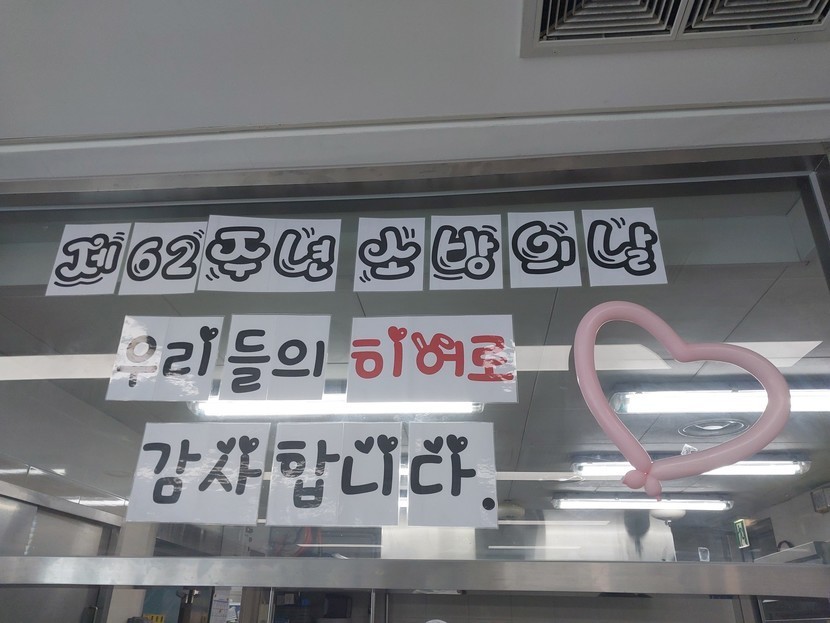 제62주년 소방의날
우리들의 히어로
감사합니다.